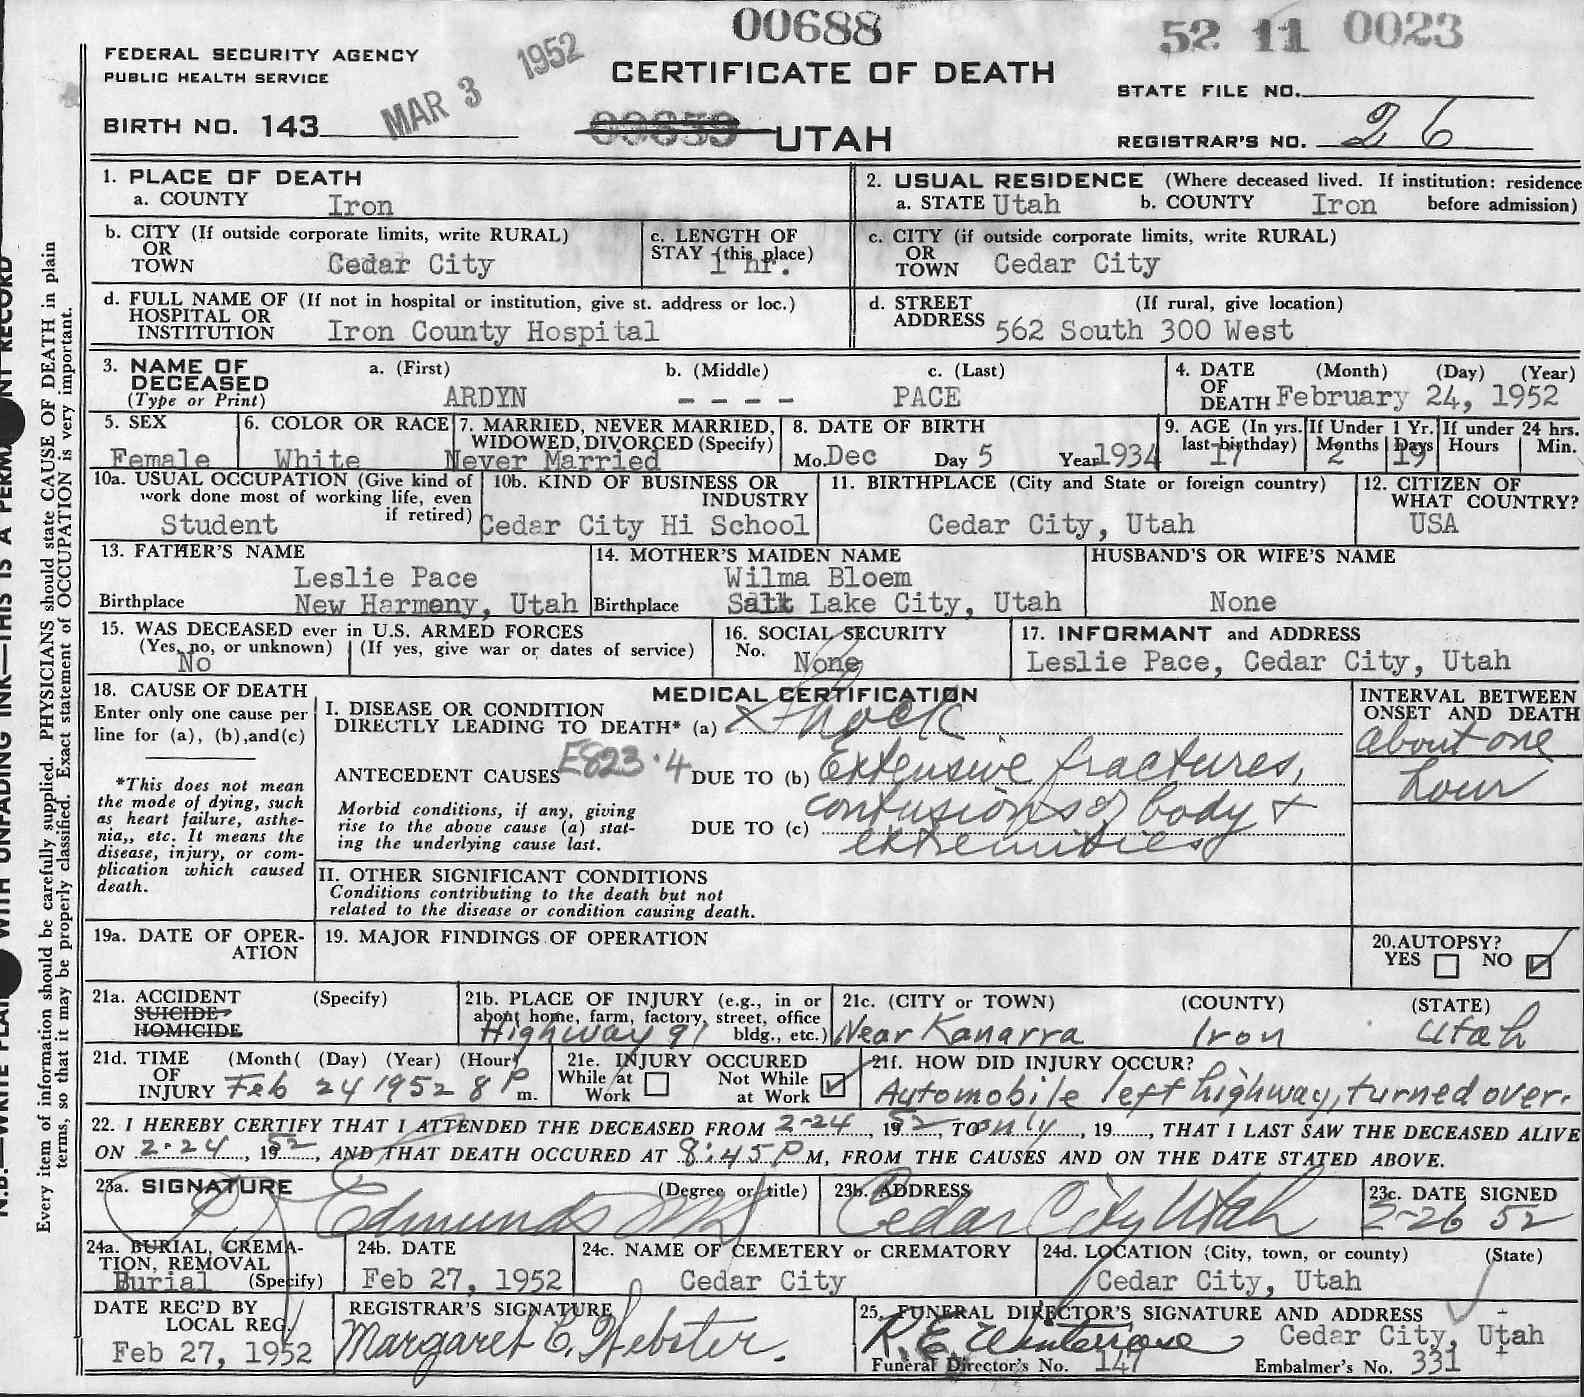 00688
52 11 0023
FEDERAL SECURITY AGENCY
PUBLIC HEALTH SERVICE
MAR 3 1952
CERTIFICATE OF DEATH
STATE FILE NO.
BIRTH NO. 143
UTAH
REGISTRAR'S NO. 26
1. PLACE OF DEATH
a. COUNTY Iron
2. USUAL RESIDENCE (Where deceased lived. If institution: residence
a. STATE Utah b. COUNTY Iron before admission)
b. CITY (If outside corporate limits, write RURAL)
OR
TOWN Cedar City
c. LENGTH OF
STAY (this place)
1 hr.
c. CITY (if outside corporate limits, write RURAL)
OR
TOWN Cedar City
d. FULL NAME OF (If not in hospital or institution, give st. address or loc.)
HOSPITAL OR
INSTITUTION Iron County Hospital
d. STREET (If rural, give location)
ADDRESS 562 South 300 West
3. NAME OF a. (First) b. (Middle) c. (Last)
DECEASED
(Type or Print) ARDYN - - - - PACE
4. DATE (Month) (Day) (Year)
OF
DEATH February 24, 1952
5. SEX
Female
6. COLOR OR RACE
White
7. MARRIED, NEVER MARRIED,
WIDOWED, DIVORCED (Specify)
Never Married
8. DATE OF BIRTH
Mo. Dec Day 5 Year 1934
9. AGE (In yrs. If Under 1 Yr. If under 24 hrs.
last birthday) Months Days Hours Min.
17 2 19
10a. USUAL OCCUPATION (Give kind of
work done most of working life, even
if retired)
Student
10b. KIND OF BUSINESS OR
INDUSTRY
Cedar City Hi School
11. BIRTHPLACE (City and State or foreign country)
Cedar City, Utah
12. CITIZEN OF
WHAT COUNTRY?
USA
13. FATHER'S NAME
Leslie Pace
Birthplace New Harmony, Utah
14. MOTHER'S MAIDEN NAME
Wilma Bloem
Birthplace Salt Lake City, Utah
HUSBAND'S OR WIFE'S NAME
None
15. WAS DECEASED ever in U.S. ARMED FORCES
(Yes, no, or unknown) (If yes, give war or dates of service)
No
16. SOCIAL SECURITY
No. None
17. INFORMANT and ADDRESS
Leslie Pace, Cedar City, Utah
18. CAUSE OF DEATH
Enter only one cause per
line for (a), (b),and(c)
*This does not mean
the mode of dying, such
as heart failure, asthe-
nia,, etc. It means the
disease, injury, or com-
plication which caused
death.
MEDICAL CERTIFICATION
I. DISEASE OR CONDITION
DIRECTLY LEADING TO DEATH* (a) Shock
ANTECEDENT CAUSES E823.4 DUE TO (b) Extensive fractures,
Morbid conditions, if any, giving
rise to the above cause (a) stat-
ing the underlying cause last.
contusions of body &
DUE TO (c) extremities
INTERVAL BETWEEN
ONSET AND DEATH
about one
hour
II. OTHER SIGNIFICANT CONDITIONS
Conditions contributing to the death but not
related to the disease or condition causing death.
19a. DATE OF OPER-
ATION
19. MAJOR FINDINGS OF OPERATION
20. AUTOPSY?
YES NO
21a. ACCIDENT (Specify)
SUICIDE
HOMICIDE
21b. PLACE OF INJURY (e.g., in or
about home, farm, factory, street, office
bldg., etc.)
Highway 91
21c. (CITY or TOWN) (COUNTY) (STATE)
Near Kanarra Iron Utah
21d. TIME (Month( (Day) (Year) (Hour)
OF
INJURY Feb 24 1952 8 P m.
21e. INJURY OCCURED
While at Not While
Work at Work
21f. HOW DID INJURY OCCUR?
Automobile left highway, turned over.
22. I HEREBY CERTIFY THAT I ATTENDED THE DECEASED FROM 2-24, 1952, TO only, 19....., THAT I LAST SAW THE DECEASED ALIVE
ON 2-24, 1952, AND THAT DEATH OCCURED AT 8:45 P M, FROM THE CAUSES AND ON THE DATE STATED ABOVE.
23a. SIGNATURE (Degree or title)
Edmunds MD
23b. ADDRESS
Cedar City Utah
23c. DATE SIGNED
2-26 52
24a. BURIAL, CREMA-
TION, REMOVAL
Burial (Specify)
24b. DATE
Feb 27, 1952
24c. NAME OF CEMETERY or CREMATORY
Cedar City
24d. LOCATION (City, town, or county) (State)
Cedar City, Utah
DATE REC'D BY
LOCAL REG.
Feb 27, 1952
REGISTRAR'S SIGNATURE
Margaret C. Webster.
25. FUNERAL DIRECTOR'S SIGNATURE AND ADDRESS
Cedar City, Utah
Funeral Director's No. 147 Embalmer's No. 331
Every item of information should be carefully supplied. PHYSICIANS should state CAUSE OF DEATH in plain
terms, so that it may be properly classified. Exact statement of OCCUPATION is very important.
WITH UNFADING INK—THIS IS A
RECORD